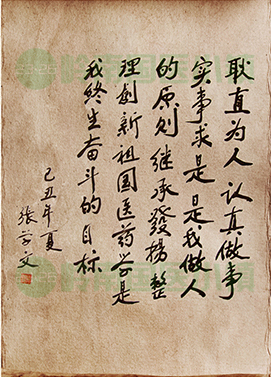 耿直为人 认真做事
实事求是 是我做人
的原则 继承發揚 整
理创新祖国医药学是
我终生奋斗的目标
己丑年夏
张学文